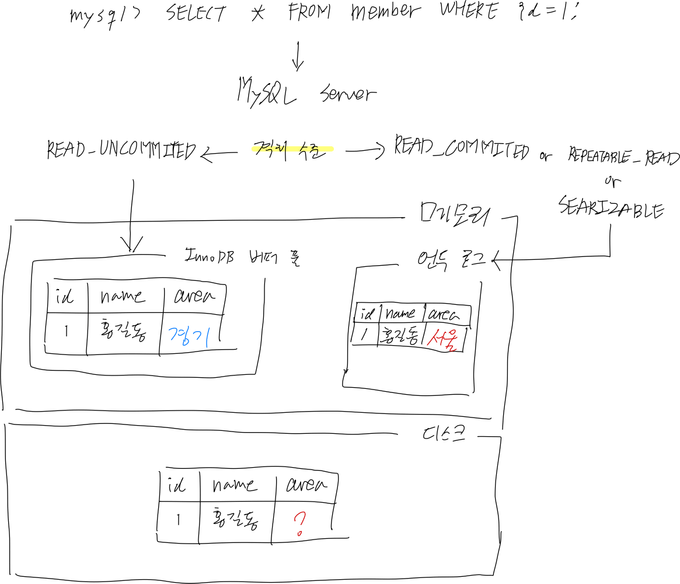 mysql> SELECT * FROM member WHERE id=1;
MySQL server
READ_UNCOMMITED 격리 수준 READ_COMMITED or REPEATABLE_READ
or
SEARIZABLE
메모리
InnoDB 버퍼 풀
언두 로그
id name area
1 홍길동 경기
id name area
1 홍길동 서울
디스크
id name area
1 홍길동 ?